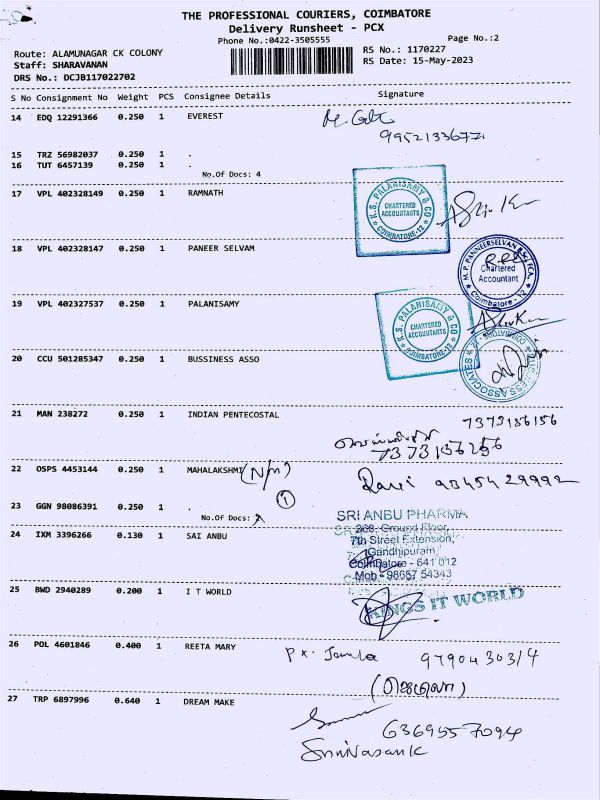 THE PROFESSIONAL COURIERS, COIMBATORE
Delivery Runsheet - PCX
Phone No.:0422-3505555
Page No.:2
Route: ALAMUNAGAR CK COLONY
Staff: SHARAVANAN
DRS No.: DCJB117022702
RS No.: 1170227
RS Date: 15-May-2023
S No Consignment No Weight PCS Consignee Details Signature
14 EDQ 12291366 0.250 1 EVEREST
15 TRZ 56982037 0.250 1 .
16 TUT 6457139 0.250 1 .
No.Of Docs: 4
17 VPL 402328149 0.250 1 RAMNATH
K.S. PALANISAMY & CO
CHARTERED
ACCOUNTANTS
COIMBATORE-12
18 VPL 402328147 0.250 1 PANEER SELVAM
M.P. PANNEERSELVAN B.Sc, FCA,
Chartered
Accountant
Coimbatore - 12
19 VPL 402327537 0.250 1 PALANISAMY
K.S. PALANISAMY & CO
CHARTERED
ACCOUNTANTS
COIMBATORE-12
20 CCU 501285347 0.250 1 BUSSINESS ASSO
BUSINESS ASSOCIATES
21 MAN 238272 0.250 1 INDIAN PENTECOSTAL
7373156156
22 OSPS 4453144 0.250 1 MAHALAKSHMI (N/M)
Ravi 9345429992
23 GGN 98086391 0.250 1 .
No.Of Docs:
1
24 IXM 3396266 0.130 1 SAI ANBU
SRI ANBU PHARMA
268, Ground Floor,
7th Street Extension,
Gandhipuram,
Coimbatore - 641 012
Mob - 98657 54343
25 BWD 2940289 0.200 1 I T WORLD
KINGS IT WORLD
26 POL 4601846 0.400 1 REETA MARY
27 TRP 6897996 0.640 1 DREAM MAKE
6369557094
Srinivasan K